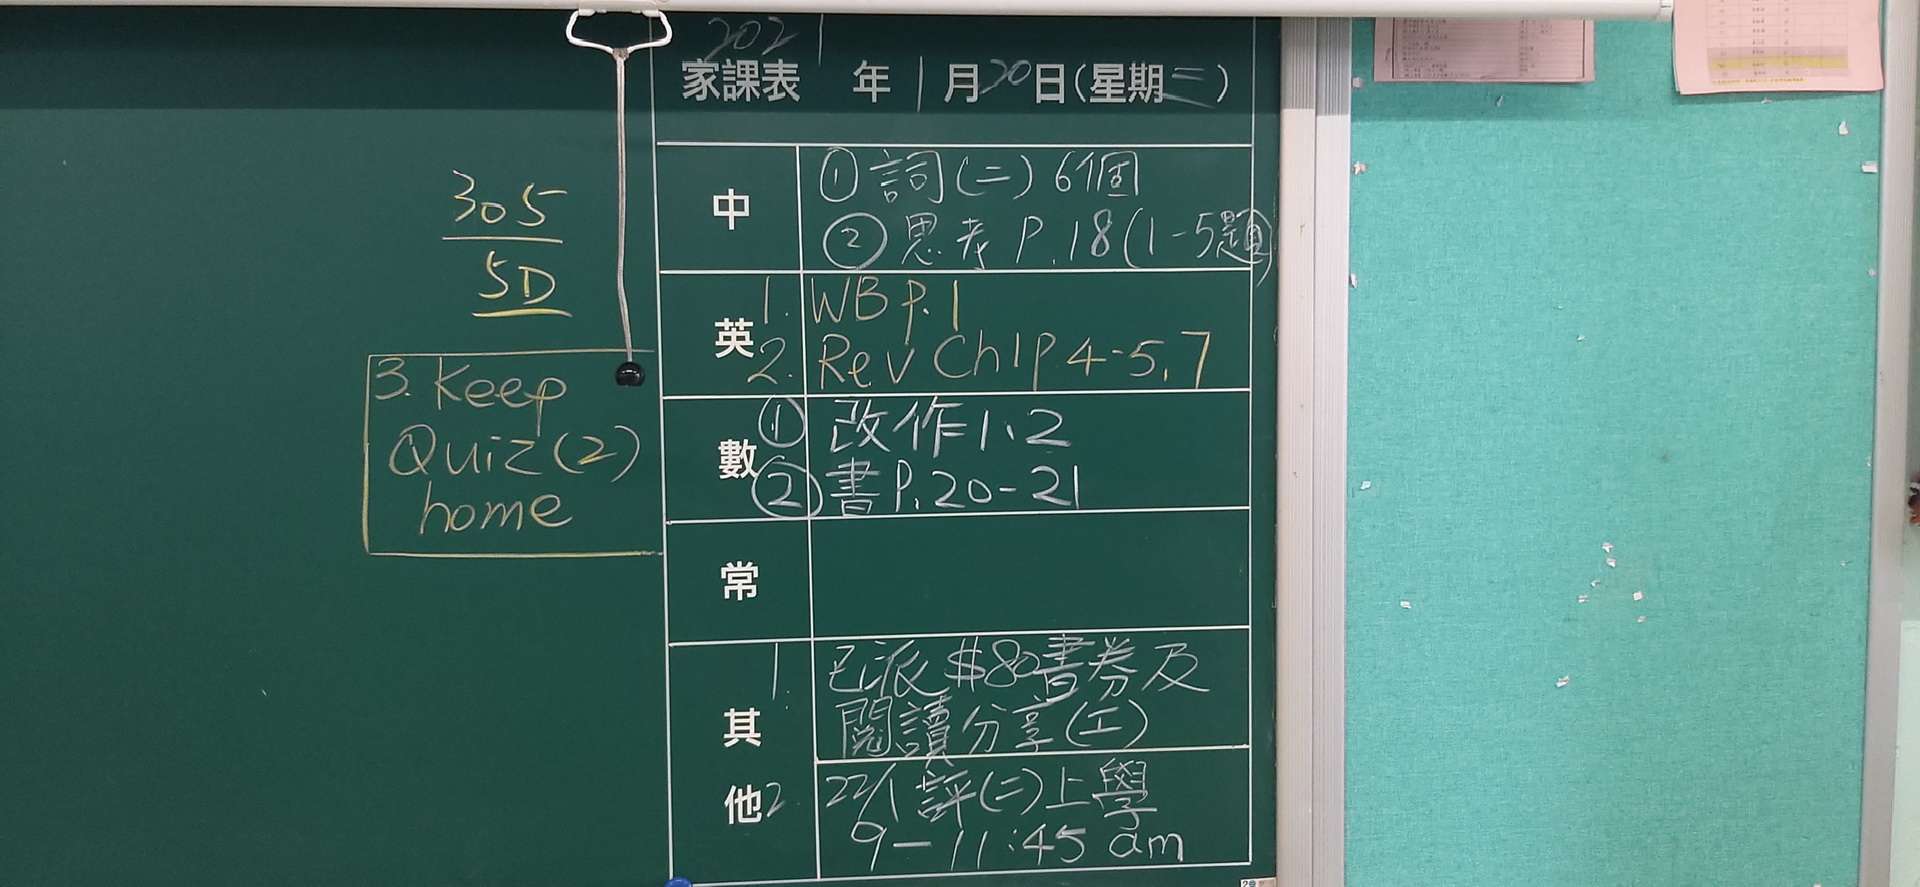 2021
家課表 年 1 月 20 日(星期三)
305
5D
中
① 詞(二) 6個
② 思考 P.18(1-5題)
英
1. WB p.1
2. Rev Ch1 p.4-5,7
3. Keep
Quiz(2)
home
數
① 改作1.2
② 書P.20-21
常
其他
1. 已派$80書券及
閱讀分享(工)
2 22/1 評(二)上學
9-11:45 am